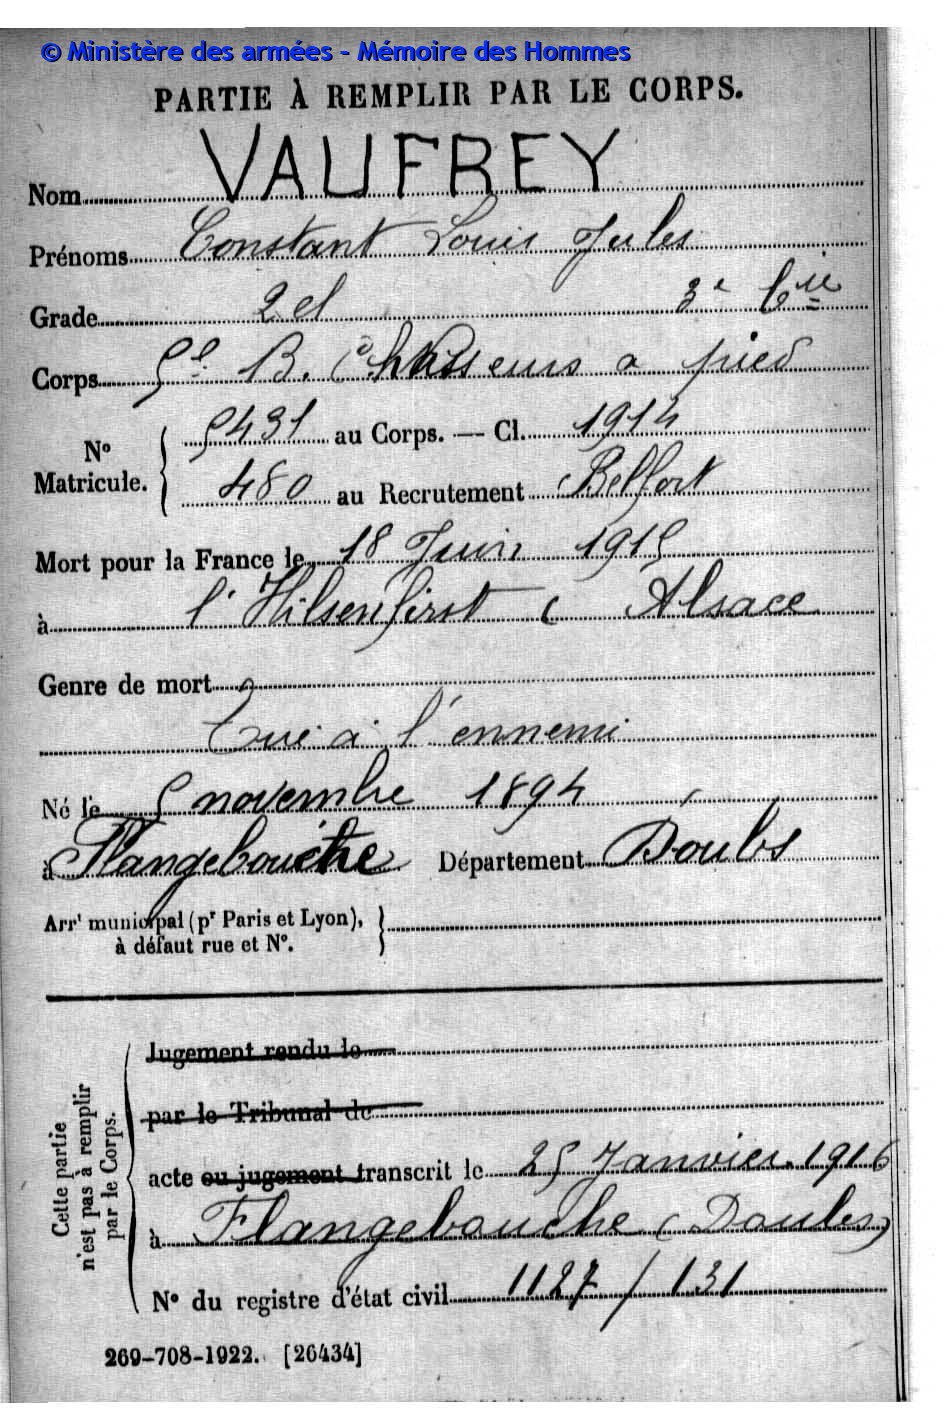 © Ministère des armées - Mémoire des Hommes
PARTIE À REMPLIR PAR LE CORPS.
Nom VAUFREY
Prénoms Constant Louis Jules
Grade 2e cl 3e Cie
Corps 5e B. Chasseurs a pied
N° Matricule. 5431 au Corps. — Cl. 1914
480 au Recrutement Belfort
Mort pour la France le 18 Juin 1915
à l'Hilsenfirst ( Alsace
Genre de mort
Tué à l'ennemi
Né le 5 novembre 1894
à Flangebouche Département Doubs
Arrt municipal (pr Paris et Lyon),
à défaut rue et N°.
Cette partie n'est pas à remplir par le Corps.
Jugement rendu le
par le Tribunal de
acte ou jugement transcrit le 25 Janvier 1916
à Flangebouche (Doubs)
N° du registre d'état civil 1127 / 131
269-708-1922. [26434]